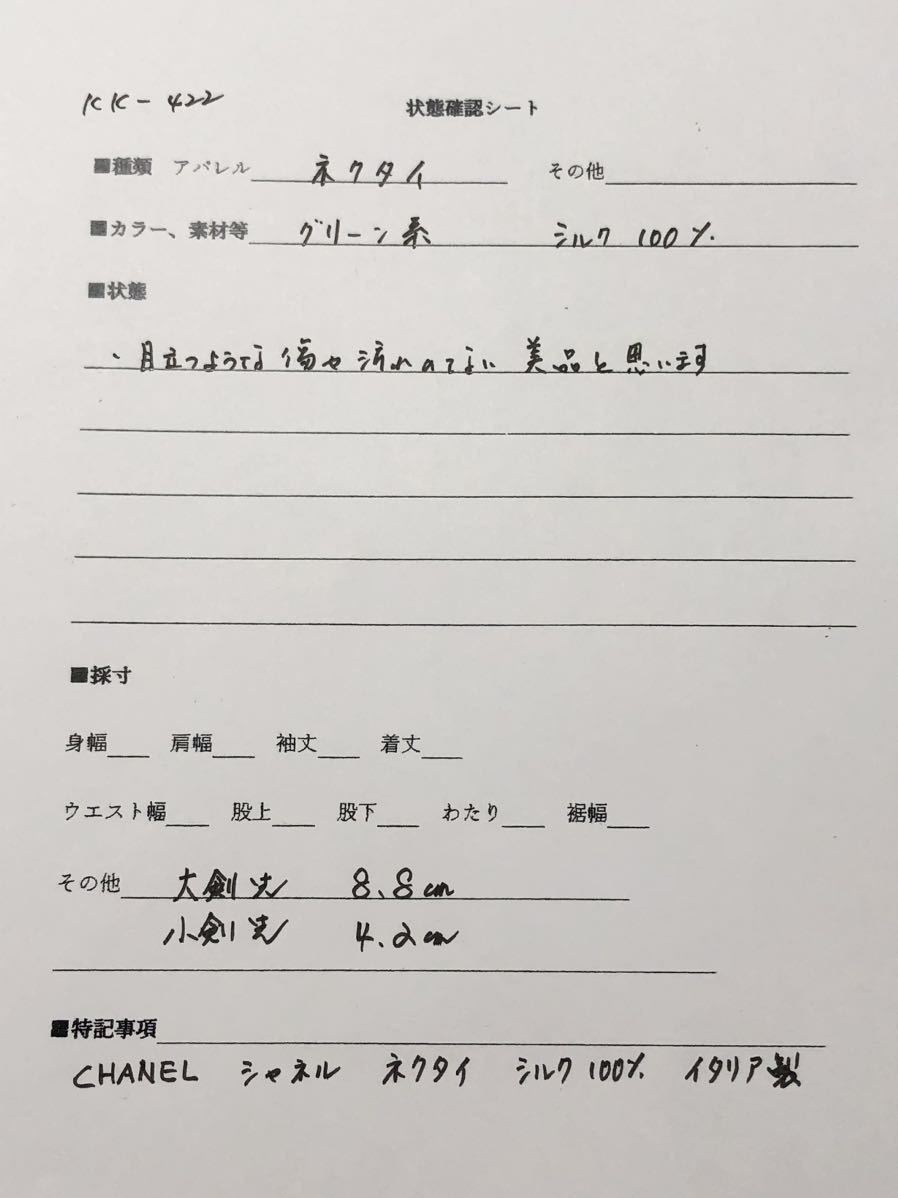 KK-422
状態確認シート
■種類 アパレル ネクタイ その他
■カラー、素材等 グリーン系 シルク 100%
■状態
・目立つような傷や汚れのない 美品と思います
■採寸
身幅 肩幅 袖丈 着丈
ウエスト幅 股上 股下 わたり 裾幅
その他 大剣先 8.8cm
小剣先 4.2cm
■特記事項
CHANEL シャネル ネクタイ シルク100% イタリア製